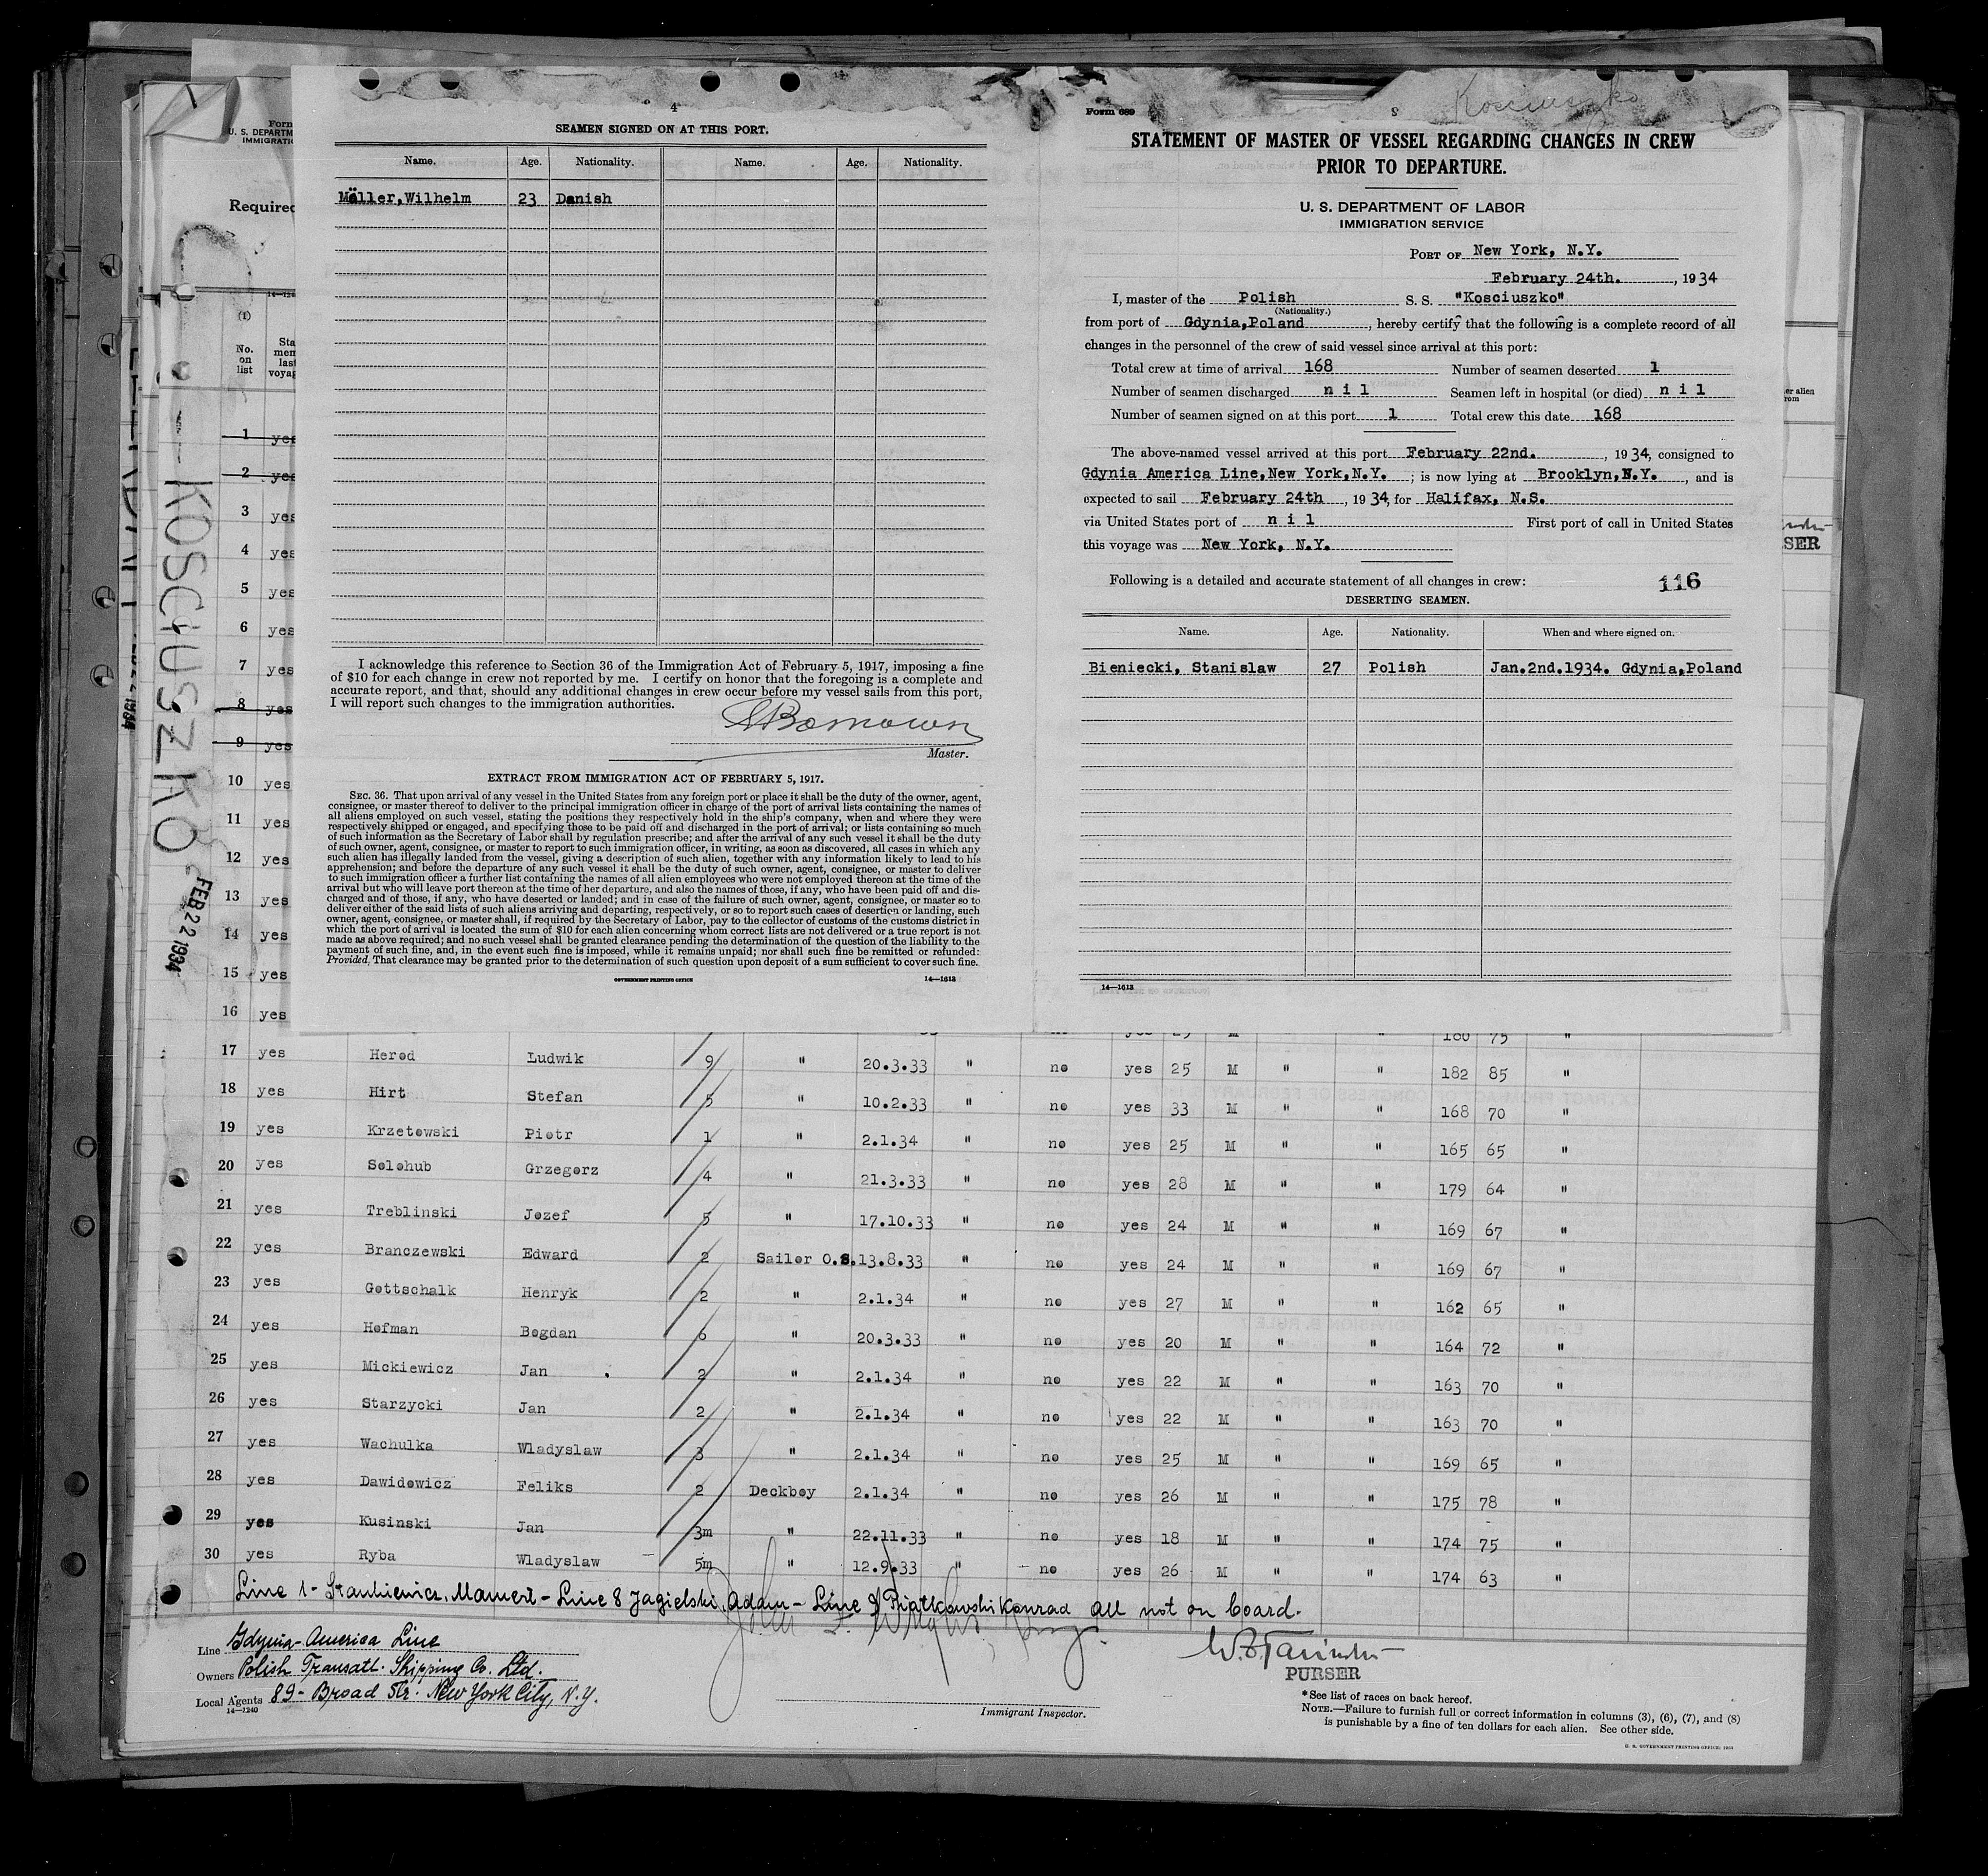 4
SEAMEN SIGNED ON AT THIS PORT.
Name. Age. Nationality. Name. Age. Nationality.
Möller, Wilhelm 23 Danish
I acknowledge this reference to Section 36 of the Immigration Act of February 5, 1917, imposing a fine
of $10 for each change in crew not reported by me. I certify on honor that the foregoing is a complete and
accurate report, and that, should any additional changes in crew occur before my vessel sails from this port,
I will report such changes to the immigration authorities.
Master.
EXTRACT FROM IMMIGRATION ACT OF FEBRUARY 5, 1917.
SEC. 36. That upon arrival of any vessel in the United States from any foreign port or place it shall be the duty of the owner, agent,
consignee, or master thereof to deliver to the principal immigration officer in charge of the port of arrival lists containing the names of
all aliens employed on such vessel, stating the positions they respectively hold in the ship's company, when and where they were
respectively shipped or engaged, and specifying those to be paid off and discharged in the port of arrival; or lists containing so much
of such information as the Secretary of Labor shall by regulation prescribe; and after the arrival of any such vessel it shall be the duty
of such owner, agent, consignee, or master to report to such immigration officer, in writing, as soon as discovered, all cases in which any
such alien has illegally landed from the vessel, giving a description of such alien, together with any information likely to lead to his
apprehension; and before the departure of any such vessel it shall be the duty of such owner, agent, consignee, or master to deliver
to such immigration officer a further list containing the names of all alien employees who were not employed thereon at the time of the
arrival but who will leave port thereon at the time of her departure, and also the names of those, if any, who have been paid off and dis-
charged and of those, if any, who have deserted or landed; and in case of the failure of such owner, agent, consignee, or master so to
deliver either of the said lists of such aliens arriving and departing, respectively, or so to report such cases of desertion or landing, such
owner, agent, consignee, or master shall, if required by the Secretary of Labor, pay to the collector of customs of the customs district in
which the port of arrival is located the sum of $10 for each alien concerning whom correct lists are not delivered or a true report is not
made as above required; and no such vessel shall be granted clearance pending the determination of the question of the liability to the
payment of such fine, and, in the event such fine is imposed, while it remains unpaid; nor shall such fine be remitted or refunded:
Provided, That clearance may be granted prior to the determination of such question upon deposit of a sum sufficient to cover such fine.
GOVERNMENT PRINTING OFFICE 14—1613
Form 689
Kosciuszko
STATEMENT OF MASTER OF VESSEL REGARDING CHANGES IN CREW
PRIOR TO DEPARTURE.
U. S. DEPARTMENT OF LABOR
IMMIGRATION SERVICE
PORT OF New York, N.Y.
February 24th. , 1934
I, master of the Polish S. S. "Kosciuszko"
(Nationality.)
from port of Gdynia,Poland , hereby certify that the following is a complete record of all
changes in the personnel of the crew of said vessel since arrival at this port:
Total crew at time of arrival 168 Number of seamen deserted 1
Number of seamen discharged n i l Seamen left in hospital (or died) n i l
Number of seamen signed on at this port 1 Total crew this date 168
The above-named vessel arrived at this port February 22nd. , 1934, consigned to
Gdynia America Line,New York,N.Y. ; is now lying at Brooklyn,N.Y. , and is
expected to sail February 24th , 1934, for Halifax, N.S.
via United States port of n i l First port of call in United States
this voyage was New York, N.Y.
Following is a detailed and accurate statement of all changes in crew: 116
DESERTING SEAMEN.
Name. Age. Nationality. When and where signed on.
Bieniecki, Stanislaw 27 Polish Jan.2nd.1934. Gdynia,Poland
14—1613
Form
U. S. DEPARTM
IMMIGRATIO
Required
(1)
No.
on
list
1 yes
2 yes
3 yes
4 yes
5 yes
6 yes
7 yes
8 yes
9 yes
10 yes
11 yes
12 yes
13 yes
14 yes
15 yes
16 yes
KOSCIUSZKO
FEB 22 1934
SER
17 yes Herod Ludwik 9 " 20.3.33 " no yes 25 M " " 182 85 "
18 yes Hirt Stefan 5 " 10.2.33 " no yes 33 M " " 168 70 "
19 yes Krzetowski Piotr 1 " 2.1.34 " no yes 25 M " " 165 65 "
20 yes Solohub Grzegorz 4 " 21.3.33 " no yes 28 M " " 179 64 "
21 yes Treblinski Jozef 5 " 17.10.33 " no yes 24 M " " 169 67 "
22 yes Branczewski Edward 2 Sailor O.S. 13.8.33 " no yes 24 M " " 169 67 "
23 yes Gottschalk Henryk 2 " 2.1.34 " no yes 27 M " " 162 65 "
24 yes Hofman Bogdan 6 " 20.3.33 " no yes 20 M " " 164 72 "
25 yes Mickiewicz Jan 2 " 2.1.34 " no yes 22 M " " 163 70 "
26 yes Starzycki Jan 2 " 2.1.34 " no yes 22 M " " 163 70 "
27 yes Wachulka Wladyslaw 3 " 2.1.34 " no yes 25 M " " 169 65 "
28 yes Dawidowicz Feliks 2 Deckboy 2.1.34 " no yes 26 M " " 175 78 "
29 yes Kusinski Jan 3m " 22.11.33 " no yes 18 M " " 174 75 "
30 yes Ryba Wladyslaw 5m " 12.9.33 " no yes 26 M " " 174 63 "
Line 1 - Stankiewicz, Mamert - Line 8 Jagielski, Adam - Line 9 Piatkowski Konrad all not on board.
Line Gdynia-America Line
Owners Polish Transatl. Shipping Co. Ltd.
Local Agents 89 - Broad Str. New York City, N.Y.
14—1240
Immigrant Inspector.
PURSER
*See list of races on back hereof.
NOTE.—Failure to furnish full or correct information in columns (3), (6), (7), and (8)
is punishable by a fine of ten dollars for each alien. See other side.